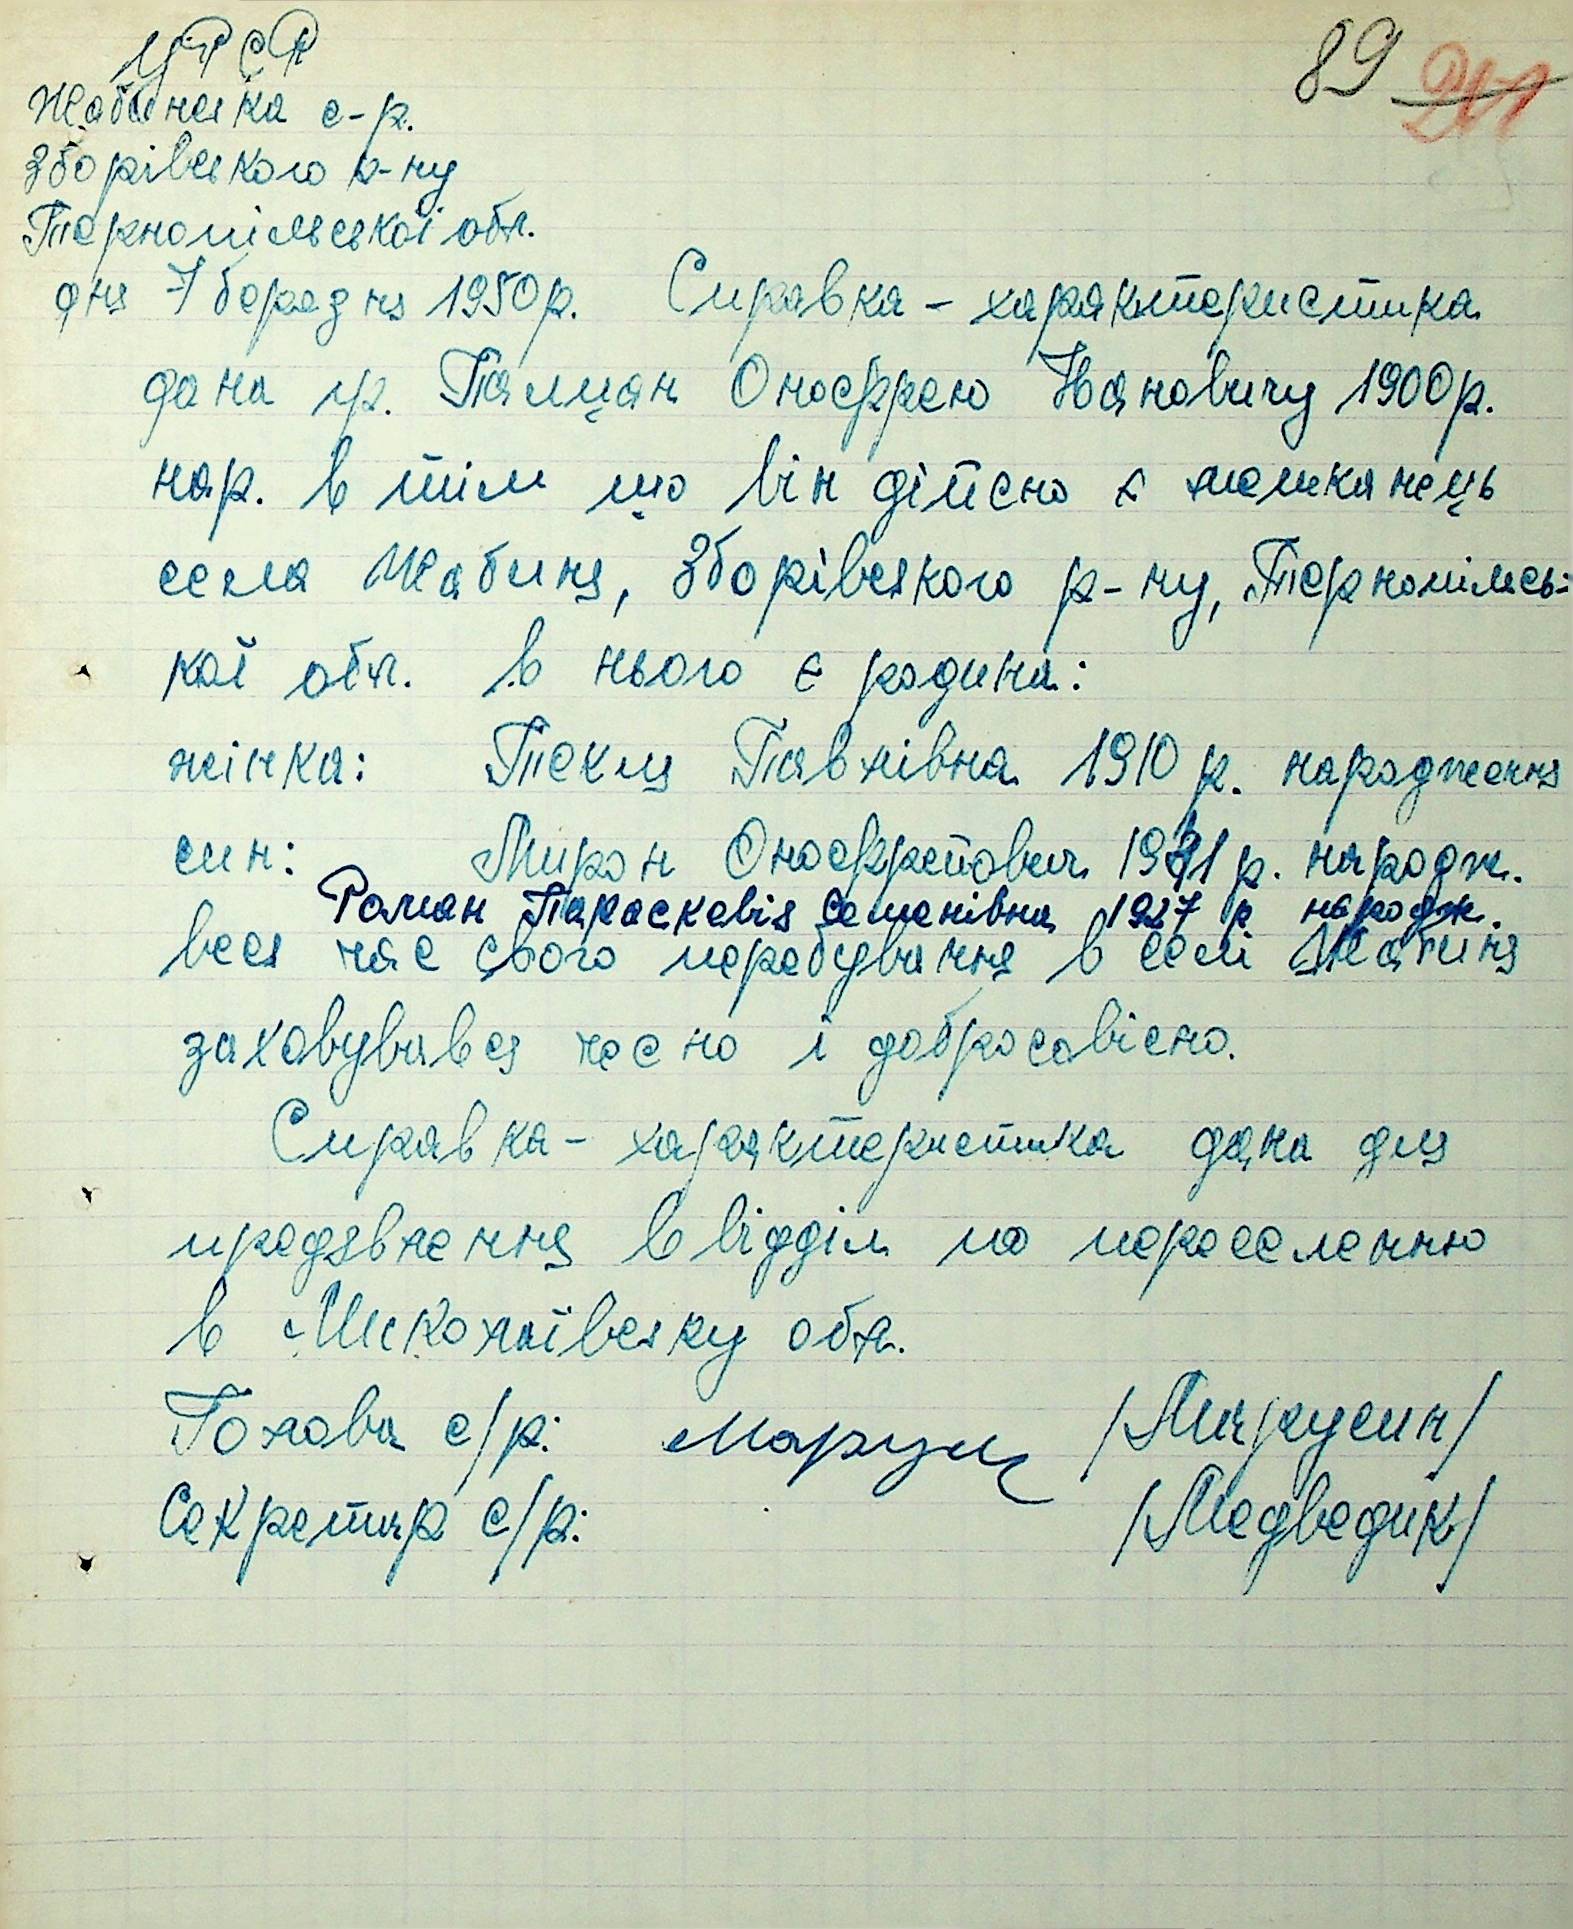 УРСР
89
Жабинська с-р.
Зборівського р-ну
Тернопільської обл.
дня 7 березня 1950 р. Справка - характеристика
дана гр. Палщан Оноффрею Івановичу 1900 р.
нар. в тім що він дійсно є мешканець
села Жабиня, Зборівского р-ну, Тернопілсь-
кої обл. В нього є родина:
жінка: Текля Павлівна 1910 р. народження
син: Мирон Оноффрейович 1931 р. народж.
Роман Параскевія Семенівна 1927 р народж.
весь час свого перебування в селі Жабиня
заховувався чесно і добросовісно.
Справка - характеристика дана для
предявлення в відділ по переселенню
в Миколаївську обл.
Голова с/р: /Марусин/
Секретар с/р: /Медведик/